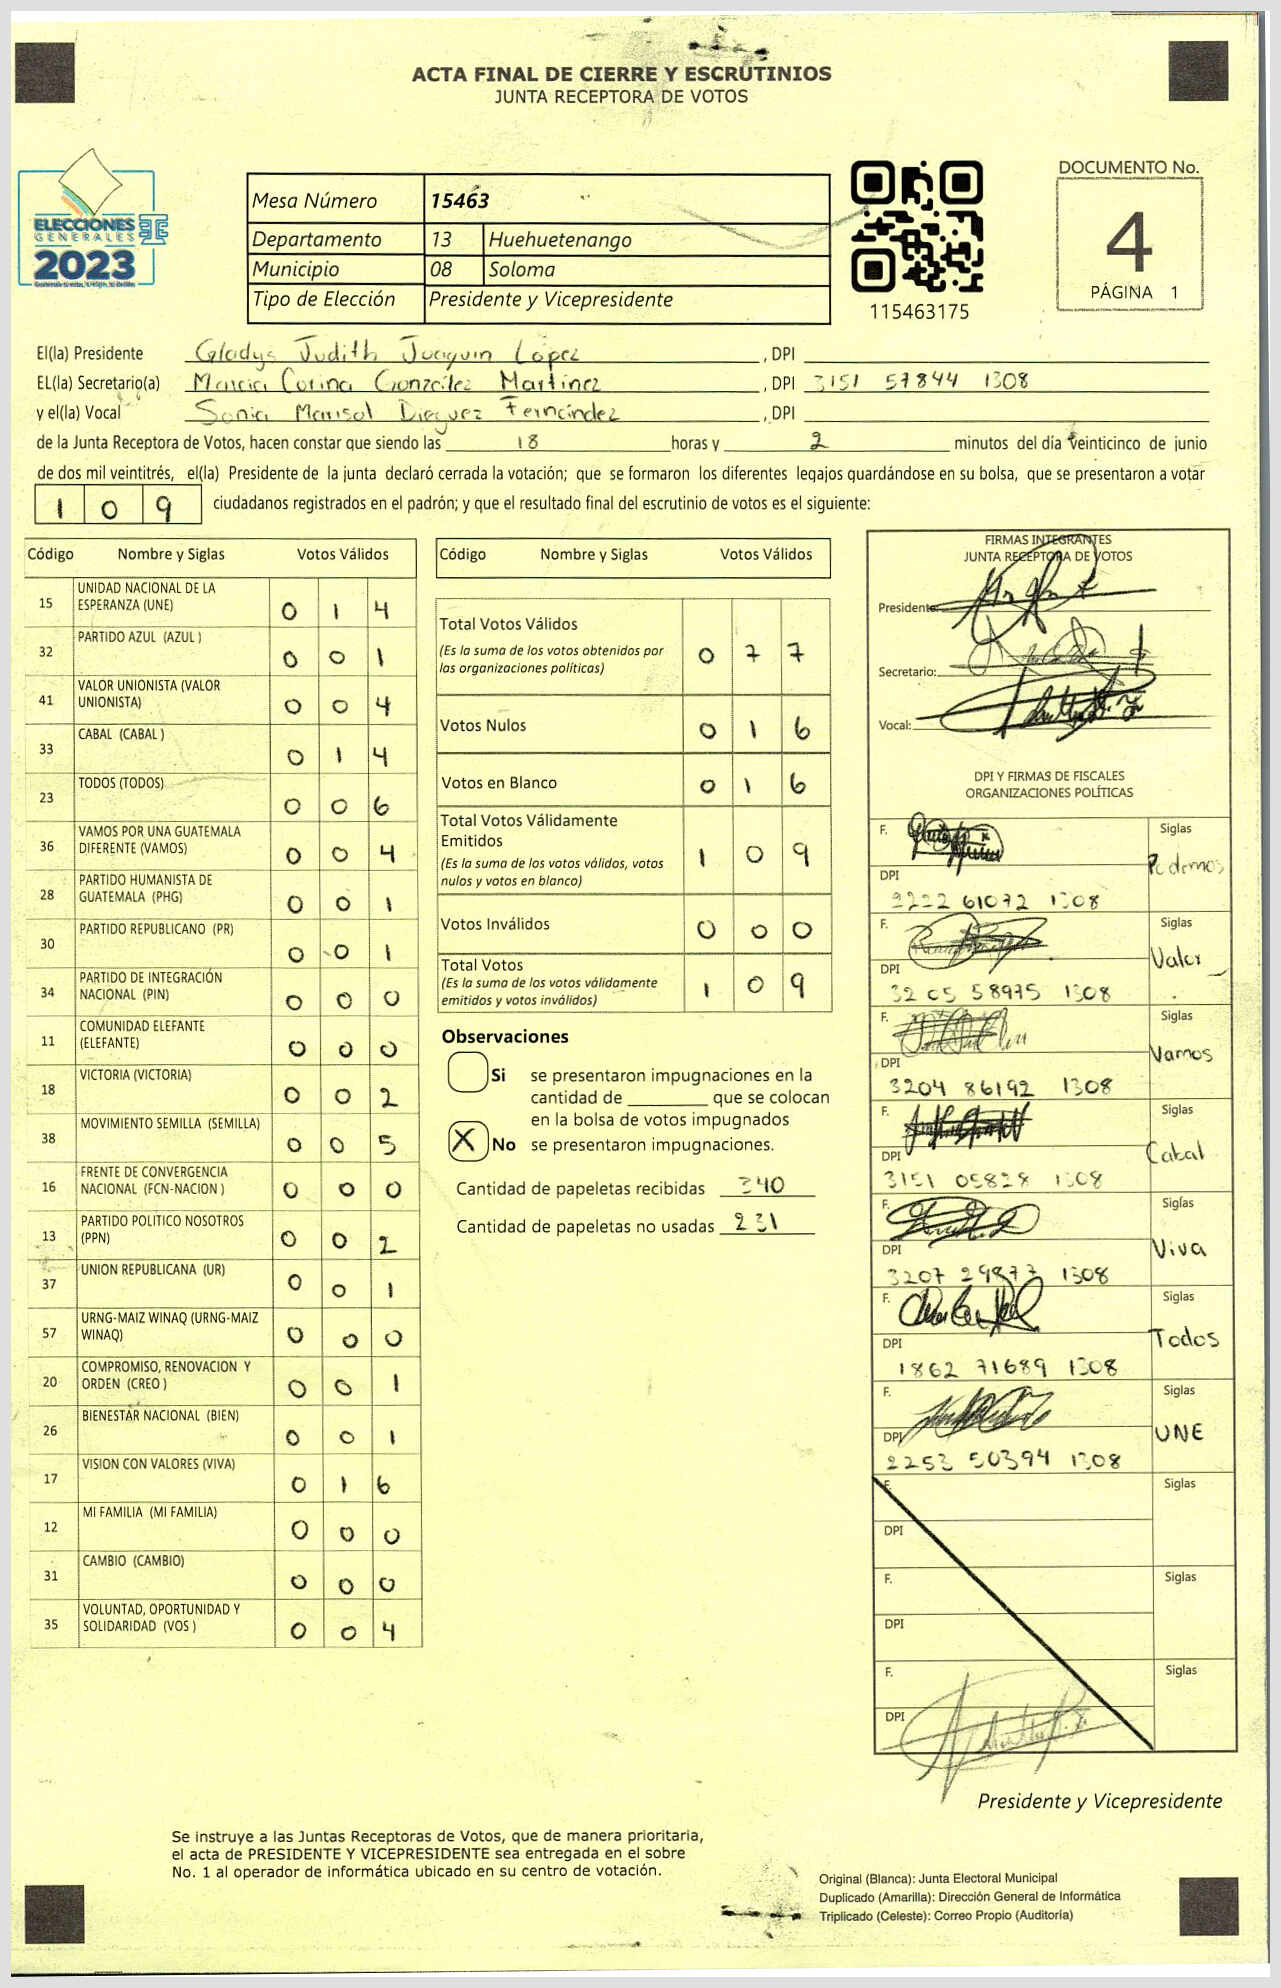 ACTA FINAL DE CIERRE Y ESCRUTINIOS
JUNTA RECEPTORA DE VOTOS
ELECCIONES
GENERALES
2023
Mesa Número 15463
Departamento 13 Huehuetenango
Municipio 08 Soloma
Tipo de Elección Presidente y Vicepresidente
115463175
DOCUMENTO No.
4
PÁGINA 1
El(la) Presidente Gladys Judith Joaquin López , DPI
EL(la) Secretario(a) Marcia Corina González Martínez , DPI 3151 57844 1308
y el(la) Vocal Sonia Marisol Dieguez Fernández , DPI
de la Junta Receptora de Votos, hacen constar que siendo las 18 horas y 2 minutos del día veinticinco de junio
de dos mil veintitrés, el(la) Presidente de la junta declaró cerrada la votación; que se formaron los diferentes legajos guardándose en su bolsa, que se presentaron a votar
1 0 9 ciudadanos registrados en el padrón; y que el resultado final del escrutinio de votos es el siguiente:
Código Nombre y Siglas Votos Válidos
15 UNIDAD NACIONAL DE LA ESPERANZA (UNE) 0 1 4
32 PARTIDO AZUL (AZUL ) 0 0 1
41 VALOR UNIONISTA (VALOR UNIONISTA) 0 0 4
33 CABAL (CABAL ) 0 1 4
23 TODOS (TODOS) 0 0 6
36 VAMOS POR UNA GUATEMALA DIFERENTE (VAMOS) 0 0 4
28 PARTIDO HUMANISTA DE GUATEMALA (PHG) 0 0 1
30 PARTIDO REPUBLICANO (PR) 0 0 1
34 PARTIDO DE INTEGRACIÓN NACIONAL (PIN) 0 0 0
11 COMUNIDAD ELEFANTE (ELEFANTE) 0 0 0
18 VICTORIA (VICTORIA) 0 0 2
38 MOVIMIENTO SEMILLA (SEMILLA) 0 0 5
16 FRENTE DE CONVERGENCIA NACIONAL (FCN-NACION ) 0 0 0
13 PARTIDO POLITICO NOSOTROS (PPN) 0 0 2
37 UNION REPUBLICANA (UR) 0 0 1
57 URNG-MAIZ WINAQ (URNG-MAIZ WINAQ) 0 0 0
20 COMPROMISO, RENOVACION Y ORDEN (CREO ) 0 0 1
26 BIENESTAR NACIONAL (BIEN) 0 0 1
17 VISION CON VALORES (VIVA) 0 1 6
12 MI FAMILIA (MI FAMILIA) 0 0 0
31 CAMBIO (CAMBIO) 0 0 0
35 VOLUNTAD, OPORTUNIDAD Y SOLIDARIDAD (VOS ) 0 0 4
Código Nombre y Siglas Votos Válidos
Total Votos Válidos 0 7 7
(Es la suma de los votos obtenidos por
las organizaciones políticas)
Votos Nulos 0 1 6
Votos en Blanco 0 1 6
Total Votos Válidamente
Emitidos 1 0 9
(Es la suma de los votos válidos, votos
nulos y votos en blanco)
Votos Inválidos 0 0 0
Total Votos
(Es la suma de los votos válidamente
emitidos y votos inválidos) 1 0 9
Observaciones
Si se presentaron impugnaciones en la
cantidad de ________ que se colocan
en la bolsa de votos impugnados
X No se presentaron impugnaciones.
Cantidad de papeletas recibidas 340
Cantidad de papeletas no usadas 231
FIRMAS INTEGRANTES
JUNTA RECEPTORA DE VOTOS
Presidente:
Secretario:
Vocal:
DPI Y FIRMAS DE FISCALES
ORGANIZACIONES POLÍTICAS
F. Siglas
Podemos
DPI
2222 61072 1308
F. Siglas
Valor
DPI
3205 58975 1308
F. Siglas
Vamos
DPI
3204 86192 1308
F. Siglas
Cabal
DPI
3151 05828 1308
F. Siglas
Viva
DPI
3207 29877 1308
F. Siglas
Todos
DPI
1862 71689 1308
F. Siglas
UNE
DPI
2253 50394 1308
F. Siglas
DPI
F. Siglas
DPI
F. Siglas
DPI
Presidente y Vicepresidente
Se instruye a las Juntas Receptoras de Votos, que de manera prioritaria,
el acta de PRESIDENTE Y VICEPRESIDENTE sea entregada en el sobre
No. 1 al operador de informática ubicado en su centro de votación.
Original (Blanca): Junta Electoral Municipal
Duplicado (Amarilla): Dirección General de Informática
Triplicado (Celeste): Correo Propio (Auditoría)